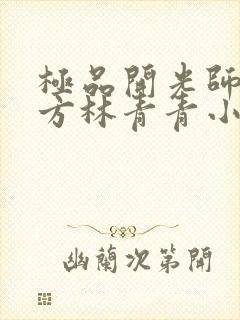 極品開光師
方林青青小
幽蘭次第開